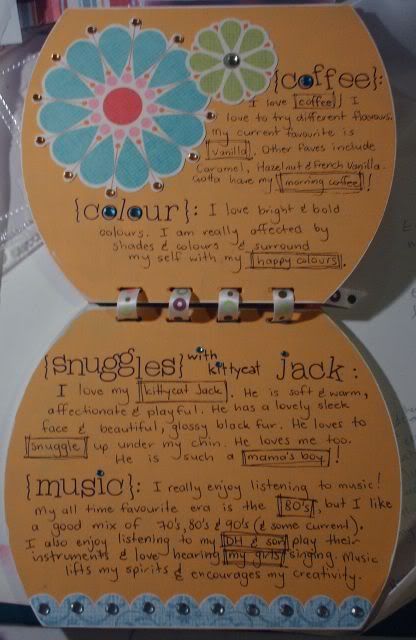 {coffee}:
I love coffee! I
love to try different flavours.
My current favourite is
vanilla. Other faves include
Caramel, Hazelnut & French Vanilla.
Gotta have my morning coffee!
{colour}: I love bright & bold
colours. I am really affected by
shades & colours & surround
my self with my happy colours.
{snuggles} with kittycat jack:
I love my kittycat Jack. He is soft & warm,
affectionate & playful. He has a lovely sleek
face & beautiful, glossy black fur. He loves to
snuggle up under my chin. He loves me too.
He is such a mama's boy!
{music}: I really enjoy listening to music!
My all time favourite era is the 80's, but I like
a good mix of 70's, 80's & 90's (& some current).
I also enjoy listening to my DH & son play their
instruments & love hearing my girls singing. Music
lifts my spirits & encourages my creativity.